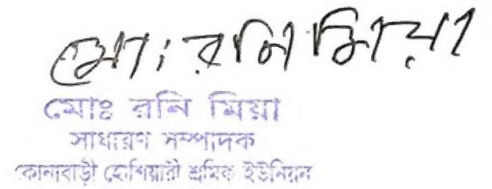 মোঃ রনি মিয়া
মোঃ রনি মিয়া
সাধারণ সম্পাদক
কোনাবাড়ী হোশিয়ারী শ্রমিক ইউনিয়ন